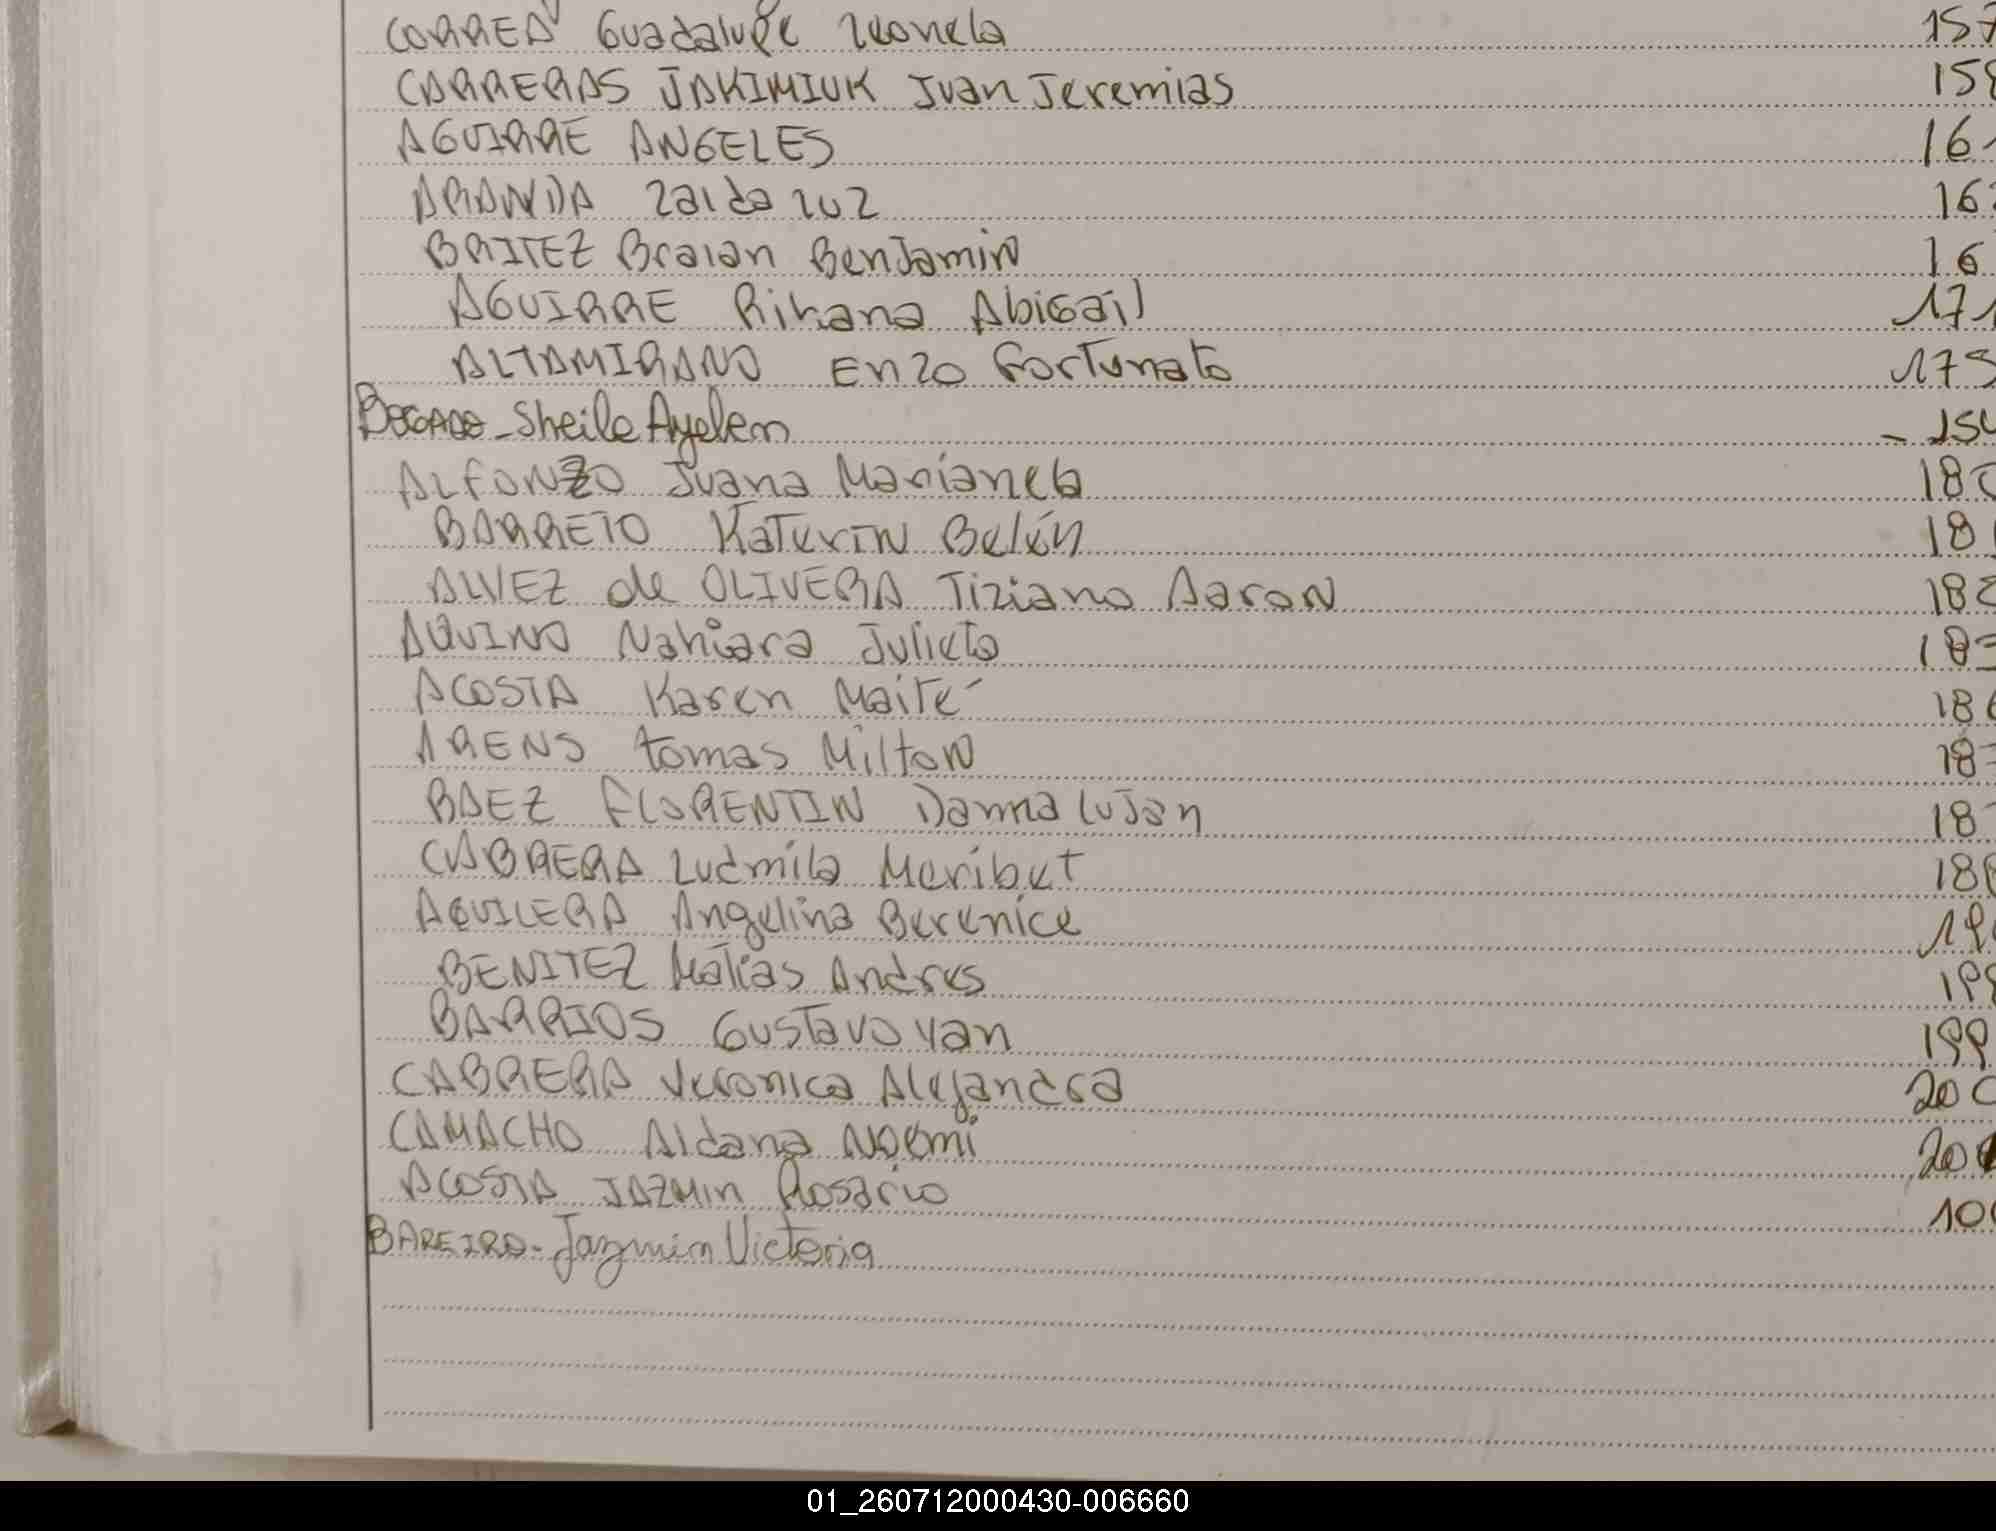 CORREA Guadalupe Leonela 157
CARRERAS JAKIMIUK Juan Jeremias 158
AGUIRRE ANGELES 161
ARANDA Zaida Luz 16
BRITEZ Braian Benjamin 16
AGUIRRE Rihana Abigaíl 171
ALTAMIRANO Enzo Fortunato 175
BOGADO - Sheile Ayelen - 154
ALFONZO Juana Marianela 180
BARRETO Katerin Belén 181
ALVEZ de OLIVERA Tiziano Aaron 182
AQUINO Nahiara Julieta 183
ACOSTA Karen Maité 186
ARENS tomas Milton 187
BAEZ FLORENTIN Danna Lujan 18
CABRERA Ludmila Meribet 188
AGUILERA Angelina Berenice 19
BENITEZ Matías Andres 198
BARRIOS Gustavo Yan 199
CABRERA Veronica Alejandra 200
CAMACHO Aldana Noemi 20
ACOSTA JAZMIN Rosario 10
BAREIRO - Jazmin Victoria
01_260712000430-006660